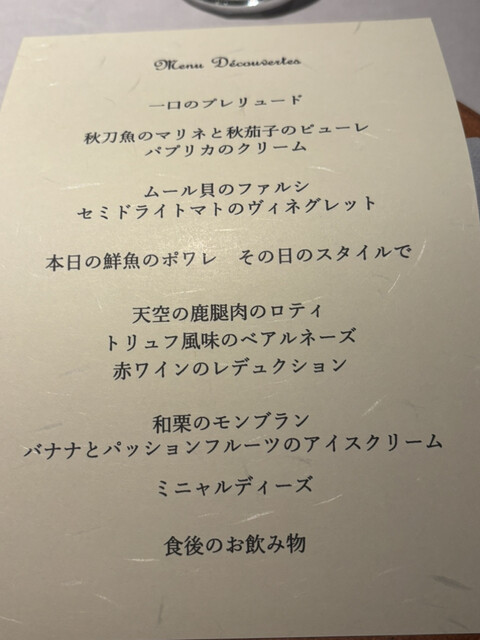 Menu Découvertes
一口のプレリュード
秋刀魚のマリネと秋茄子のピューレ
パプリカのクリーム
ムール貝のファルシ
セミドライトマトのヴィネグレット
本日の鮮魚のポワレ　その日のスタイルで
天空の鹿腿肉のロティ
トリュフ風味のベアルネーズ
赤ワインのレデュクション
和栗のモンブラン
バナナとパッションフルーツのアイスクリーム
ミニャルディーズ
食後のお飲み物